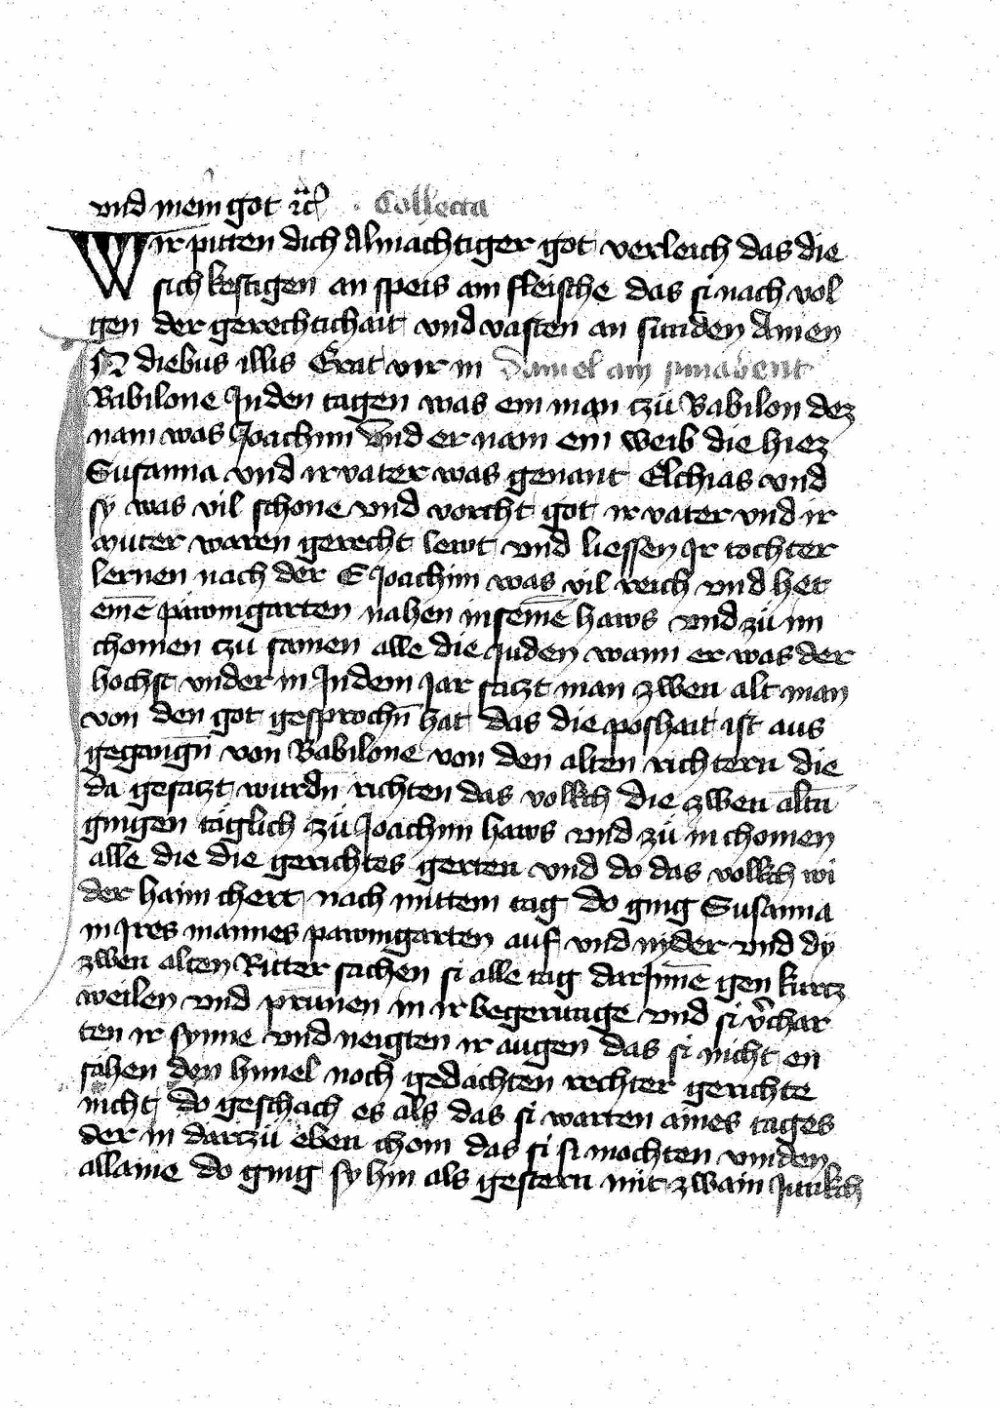 vnd mein got ⁊c̈ Collecta
Wir pitten dich Almachtiger got verleich das die
sich kestigen an speis am fleische das si nach vol
gen der gerechtichait vnd vasten an sunden Amen
IN diebus illis Erat vir in Daniel am sunabent
Babilone In den tagen was ein man czü Babilon dez
nam was Joachim Vnd er nam ein weib die hiez
Susanna vnd ir vater was genant Elchias vnd
sy was vil schone vnd vorcht got ir vater vnd ir
muter waren gerecht lewt vnd liessen Jr tochter
lernen nach der E Joachim was vil reich vnd het
einē pawmgarten nahen in seinē haws vnd zü im
chomen czü samen alle die Juden wann er was der
hochst vnder in In dem Jar saczt man zwen alt man
von den got gesprochn̄ hat das die poshait ist aus
gegangn̄ von Babilone von den alten richtern die
da gesaczt wurdn̄ richten das volkch die zwen altn̄
gingen täglich zü Joachim haws vnd zü in chomen
alle die die gerichtes gerten vnd do das volkch wi
der haim chert nach mittem tag do ging Susanna
in Jres mannes pawmgarten auf vnd nyder vnd dy
zwen alten Ritter sachen si alle tag darJnnē gen kurcz
weilen vnd prunnen in ir begerunge vnd si v̄char
ten ir synne vnd neigten ir augen das si nicht en
sahen den himel noch gedachten rechter gerichte
nicht do geschach es als das si warten aines tages
der in darczü eben chom das si si mochten vinden
allaine do ging sy hin als gestern mit zwain Junkch